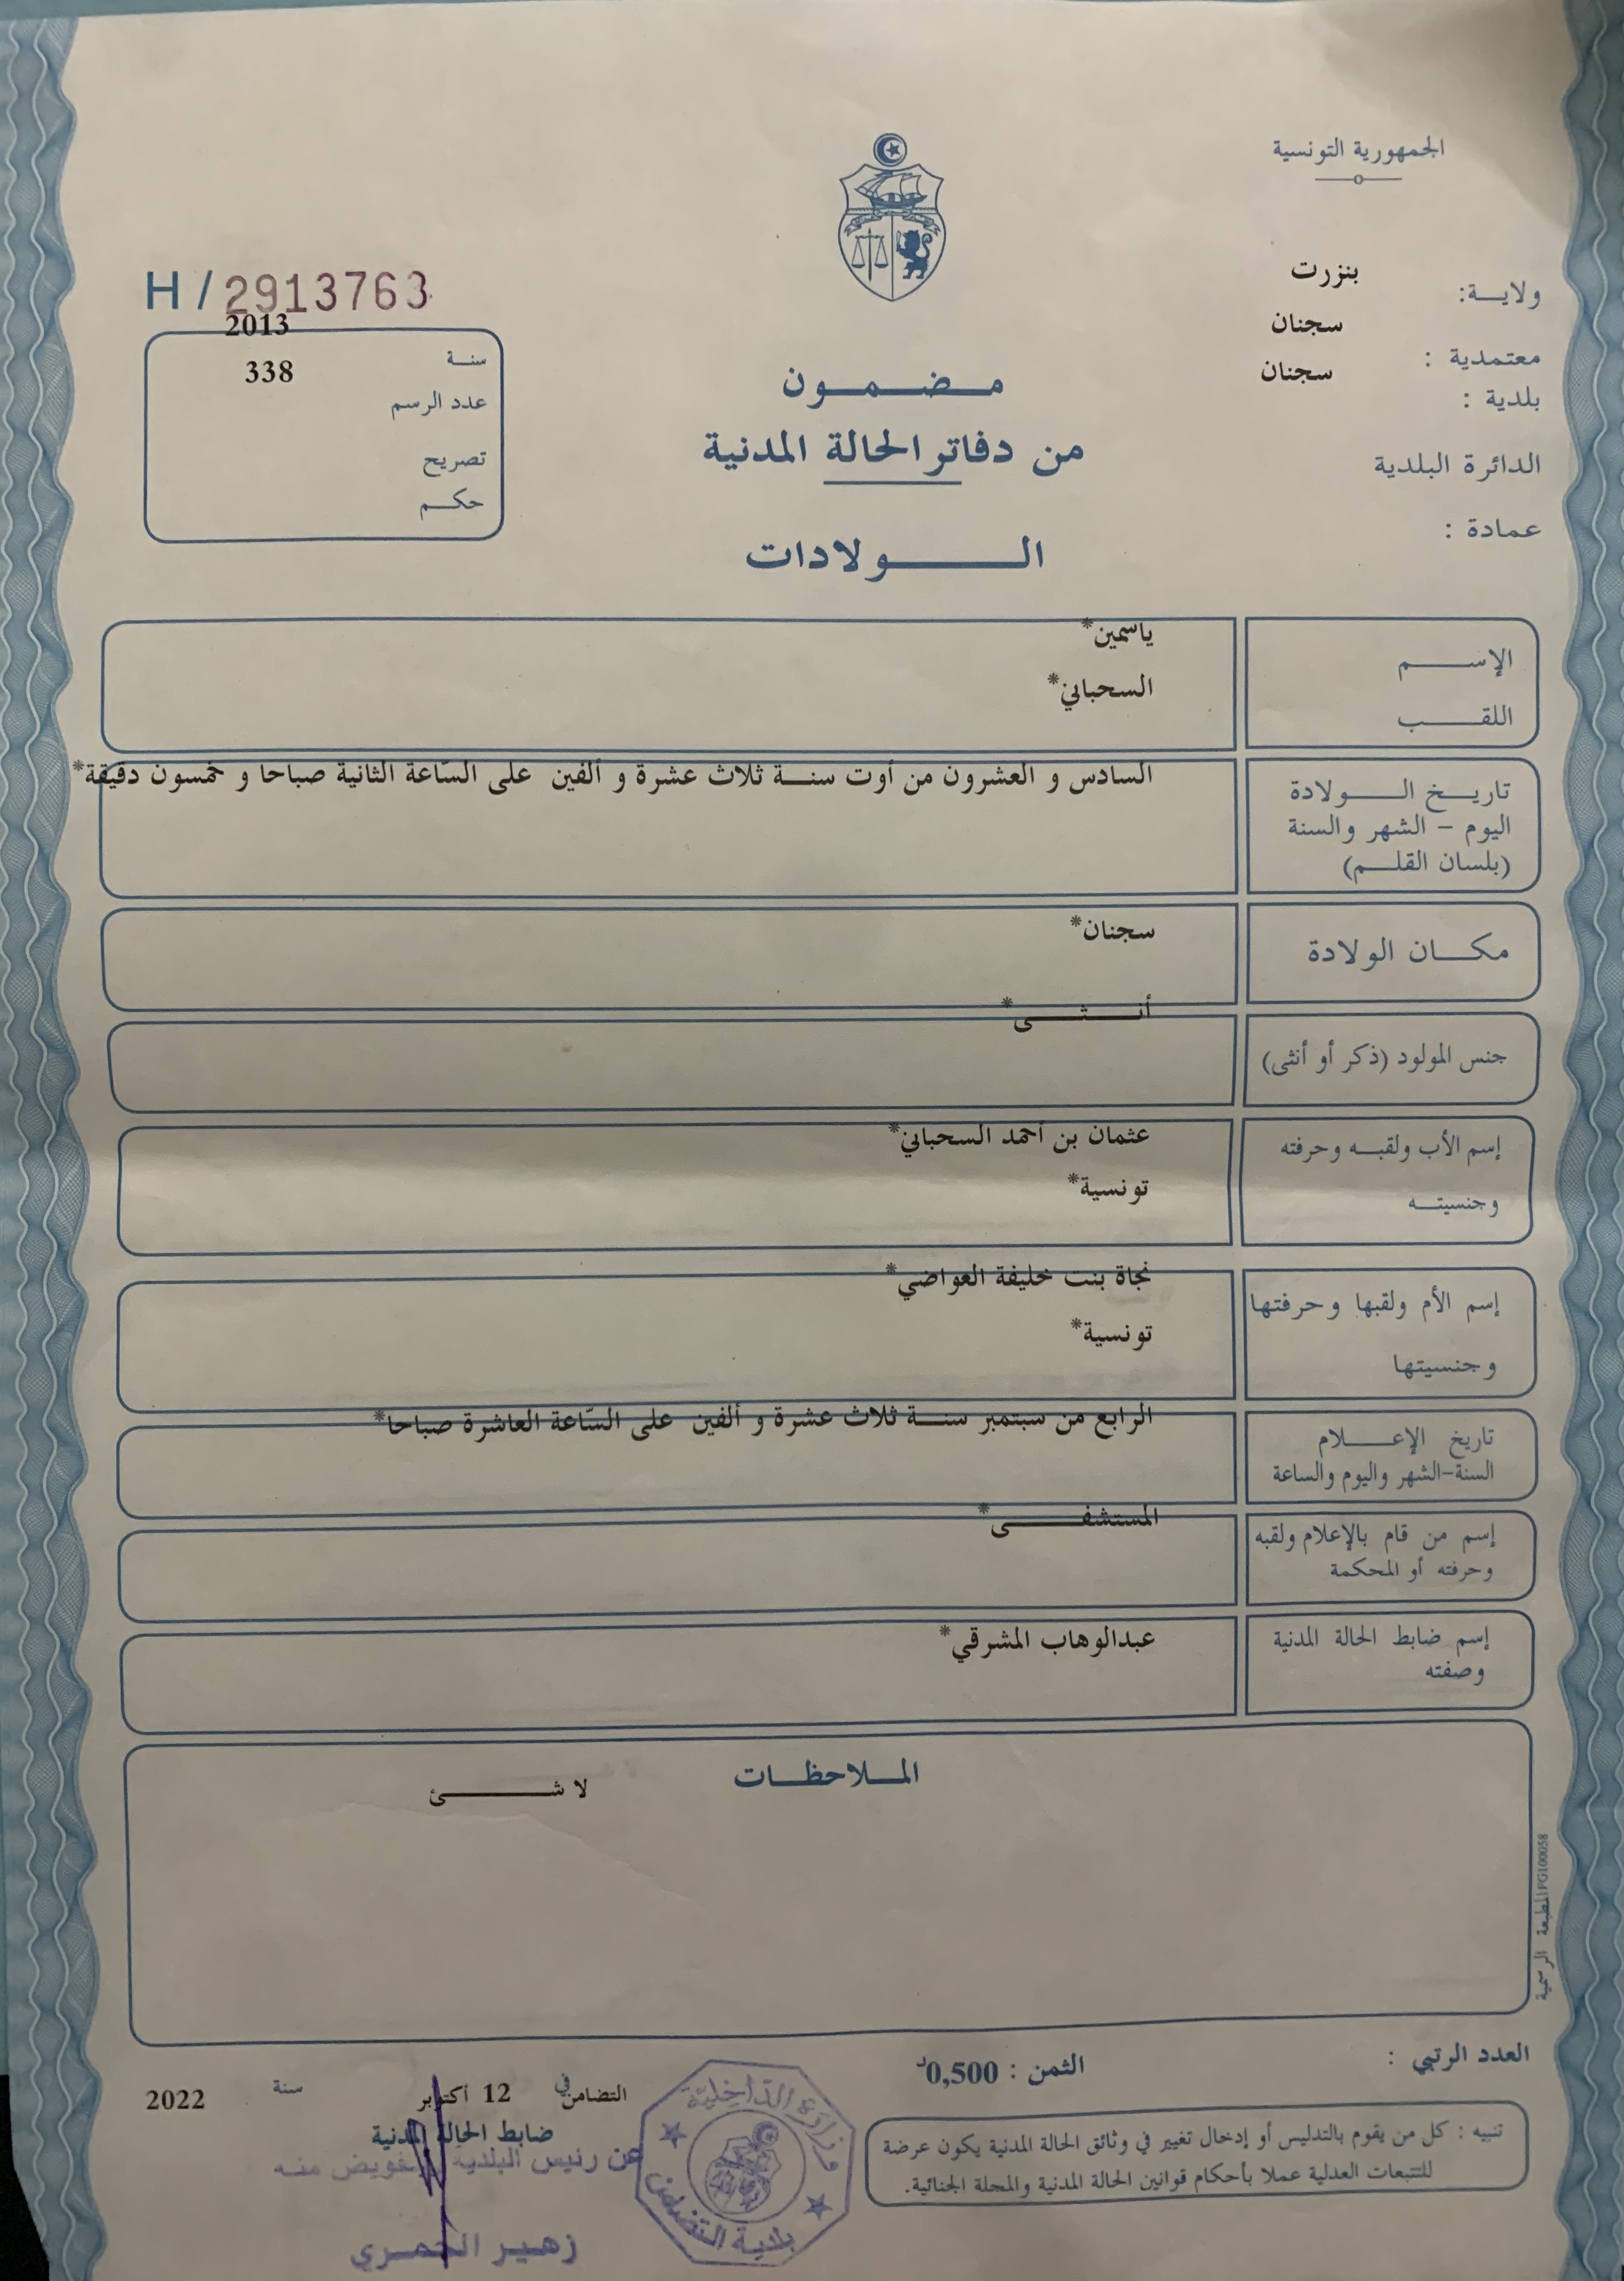 الجمهورية التونسية
ولايـــة: بنزرت
معتمدية : سجنان
بلدية : سجنان
الدائرة البلدية
عمادة :
H / 2913763
سنـة 2013
عدد الرسم 338
تصريح
حكـم
مـضـمـون
من دفاتر الحالة المدنية
الـــولادات
الإســـم ياسمين*
اللقـــب السحباني*
تاريـخ الـــولادة
اليوم – الشهر والسنة
(بلسان القلـم)
السادس و العشرون من أوت سنـة ثلاث عشرة و ألفين على السّاعة الثانية صباحا و خمسون دقيقة*
مكـــان الولادة سجنان*
جنس المولود (ذكر أو أنثى) أنـــثـــى*
إسم الأب ولقبـه وحرفته عثمان بن أحمد السحباني*
وجنسيتـه تونسية*
إسم الأم ولقبها وحرفتها نجاة بنت خليفة العواضي*
وجنسيتها تونسية*
تاريخ الإعـــلام
السنة-الشهر واليوم والساعة
الرابع من سبتمبر سنـة ثلاث عشرة و ألفين على السّاعة العاشرة صباحا*
إسم من قام بالإعلام ولقبه
وحرفته أو المحكمة
المستشفـــى*
إسم ضابط الحالة المدنية
وصفته
عبدالوهاب المشرقي*
المـلاحظـات
لا شـــئ
المطبعة الرسمية PG100058
العدد الرتبي :
الثمن : 0,500د
التضامن في 12 أكتوبر سنة 2022
ضابط الحالة المدنية
عن رئيس البلدية بتفويض منـه
زهيـر الحمـري
وزارة الدّاخليّة
بلدية التضامن
تنبيه : كل من يقوم بالتدليس أو إدخال تغيير في وثائق الحالة المدنية يكون عرضة
للتتبعات العدلية عملا بأحكام قوانين الحالة المدنية والمجلة الجنائية.